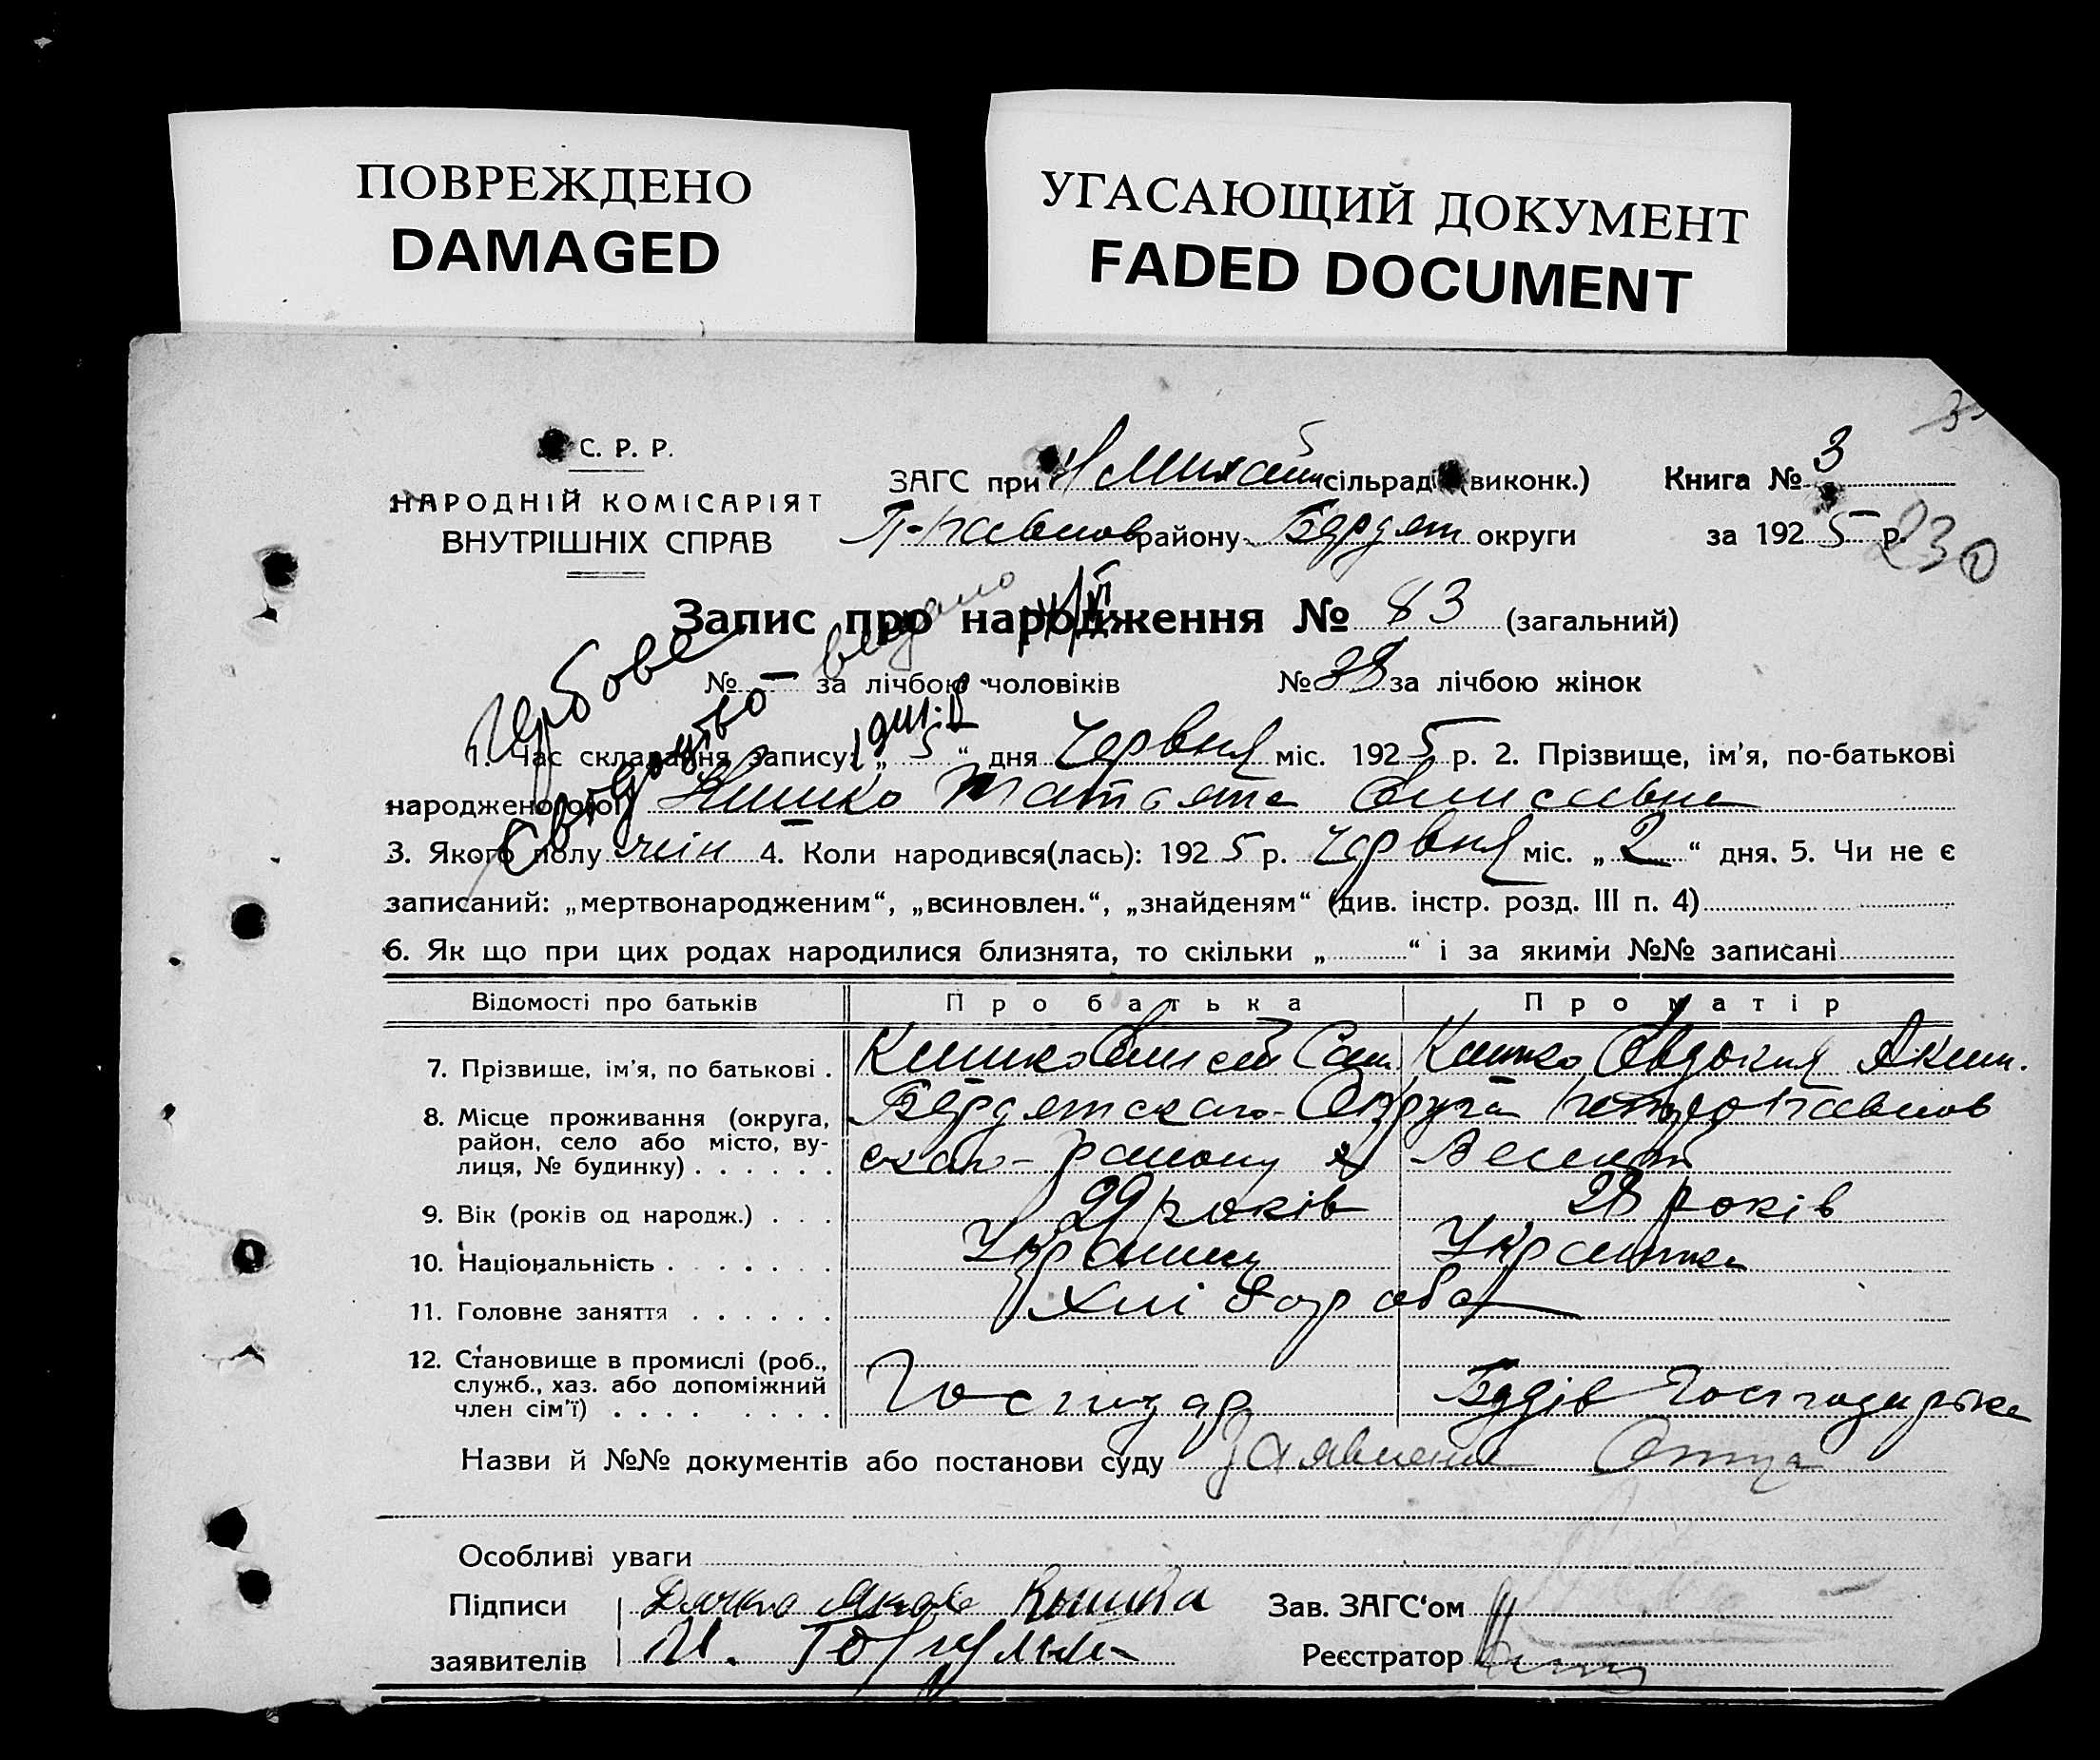 ПОВРЕЖДЕНО
DAMAGED
УГАСАЮЩИЙ ДОКУМЕНТ
FADED DOCUMENT
С. Р. Р.
НАРОДНІЙ КОМІСАРІЯТ
ВНУТРІШНІХ СПРАВ
ЗАГС при Н Михай сільрад (виконк.)
П-Павлов району Бердян округи
Книга № 3
за 1925 р.
230
Запис про народження № 83 (загальний)
№ — за лічбою чоловіків № 38 за лічбою жінок
Гербове
Свідоцтво
видано
1. Час складання запису: „ 5 “ дня Червня міс. 1925 р. 2. Прізвище, ім'я, по-батькові
народженого(ої) Кишко Татяна Елисеевна
3. Якого полу жін 4. Коли народився(лась): 1925 р. Червня міс. „ 2 “ дня. 5. Чи не є
записаний: „мертвонародженим“, „всиновлен.“, „знайденям“ (див. інстр. розд. III п. 4)
6. Як що при цих родах народилися близнята, то скільки „ “ і за якими №№ записані
Відомості про батьків Про батька Про матір
7. Прізвище, ім'я, по батькові . Кишко Елисей Сам. Кишко Евдокия Аким.
8. Місце проживання (округа, Бердянскаго Округа Петропавлов
район, село або місто, ву-
лиця, № будинку) . . . . . . скаго району
9. Вік (років од народж.) . . . 29 років 28 років
10. Національність . . . . . . . Украинц Украинка
11. Головне заняття . . . . . . Хліборобст
12. Становище в промислі (роб.,
служб., хаз. або допоміжний Господар
член сім'ї) . . . . . . . .
Назви й №№ документів або постанови суду Заявление Отца
Особливі уваги
Підписи Дячко Яков Кошка
заявителів И.
Зав. ЗАГС'ом
Реєстратор